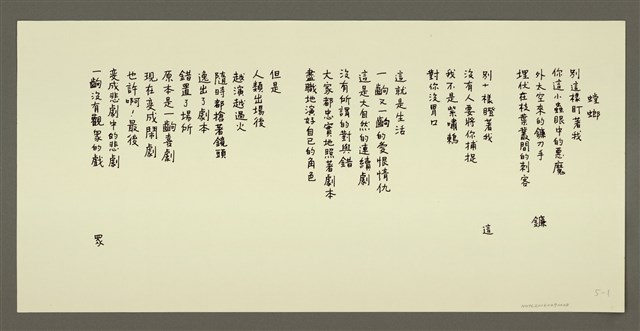 螳螂
別這樣盯著我
你這小蟲眼中的惡魔
外太空來的鐮刀手
鐮
埋伏在枝葉叢間的刺客
別十樣瞪著我
這
沒有人要將你捕捉
我不是紫嘯鶇
對你沒胃口
這就是生活
一齣又一齣的愛恨情仇
這是大自然的連續劇
沒有所謂的對與錯
大家都忠實地照著劇本
盡職地演好自己的角色
但是
人類出場後
越演越過火
隨時都搶著鏡頭
逸出了劇本
錯置了場所
原本是一齣喜劇
現在變成鬧劇
也許啊！最後
變成悲劇中的悲劇
一齣沒有觀眾的戲
眾
5-1